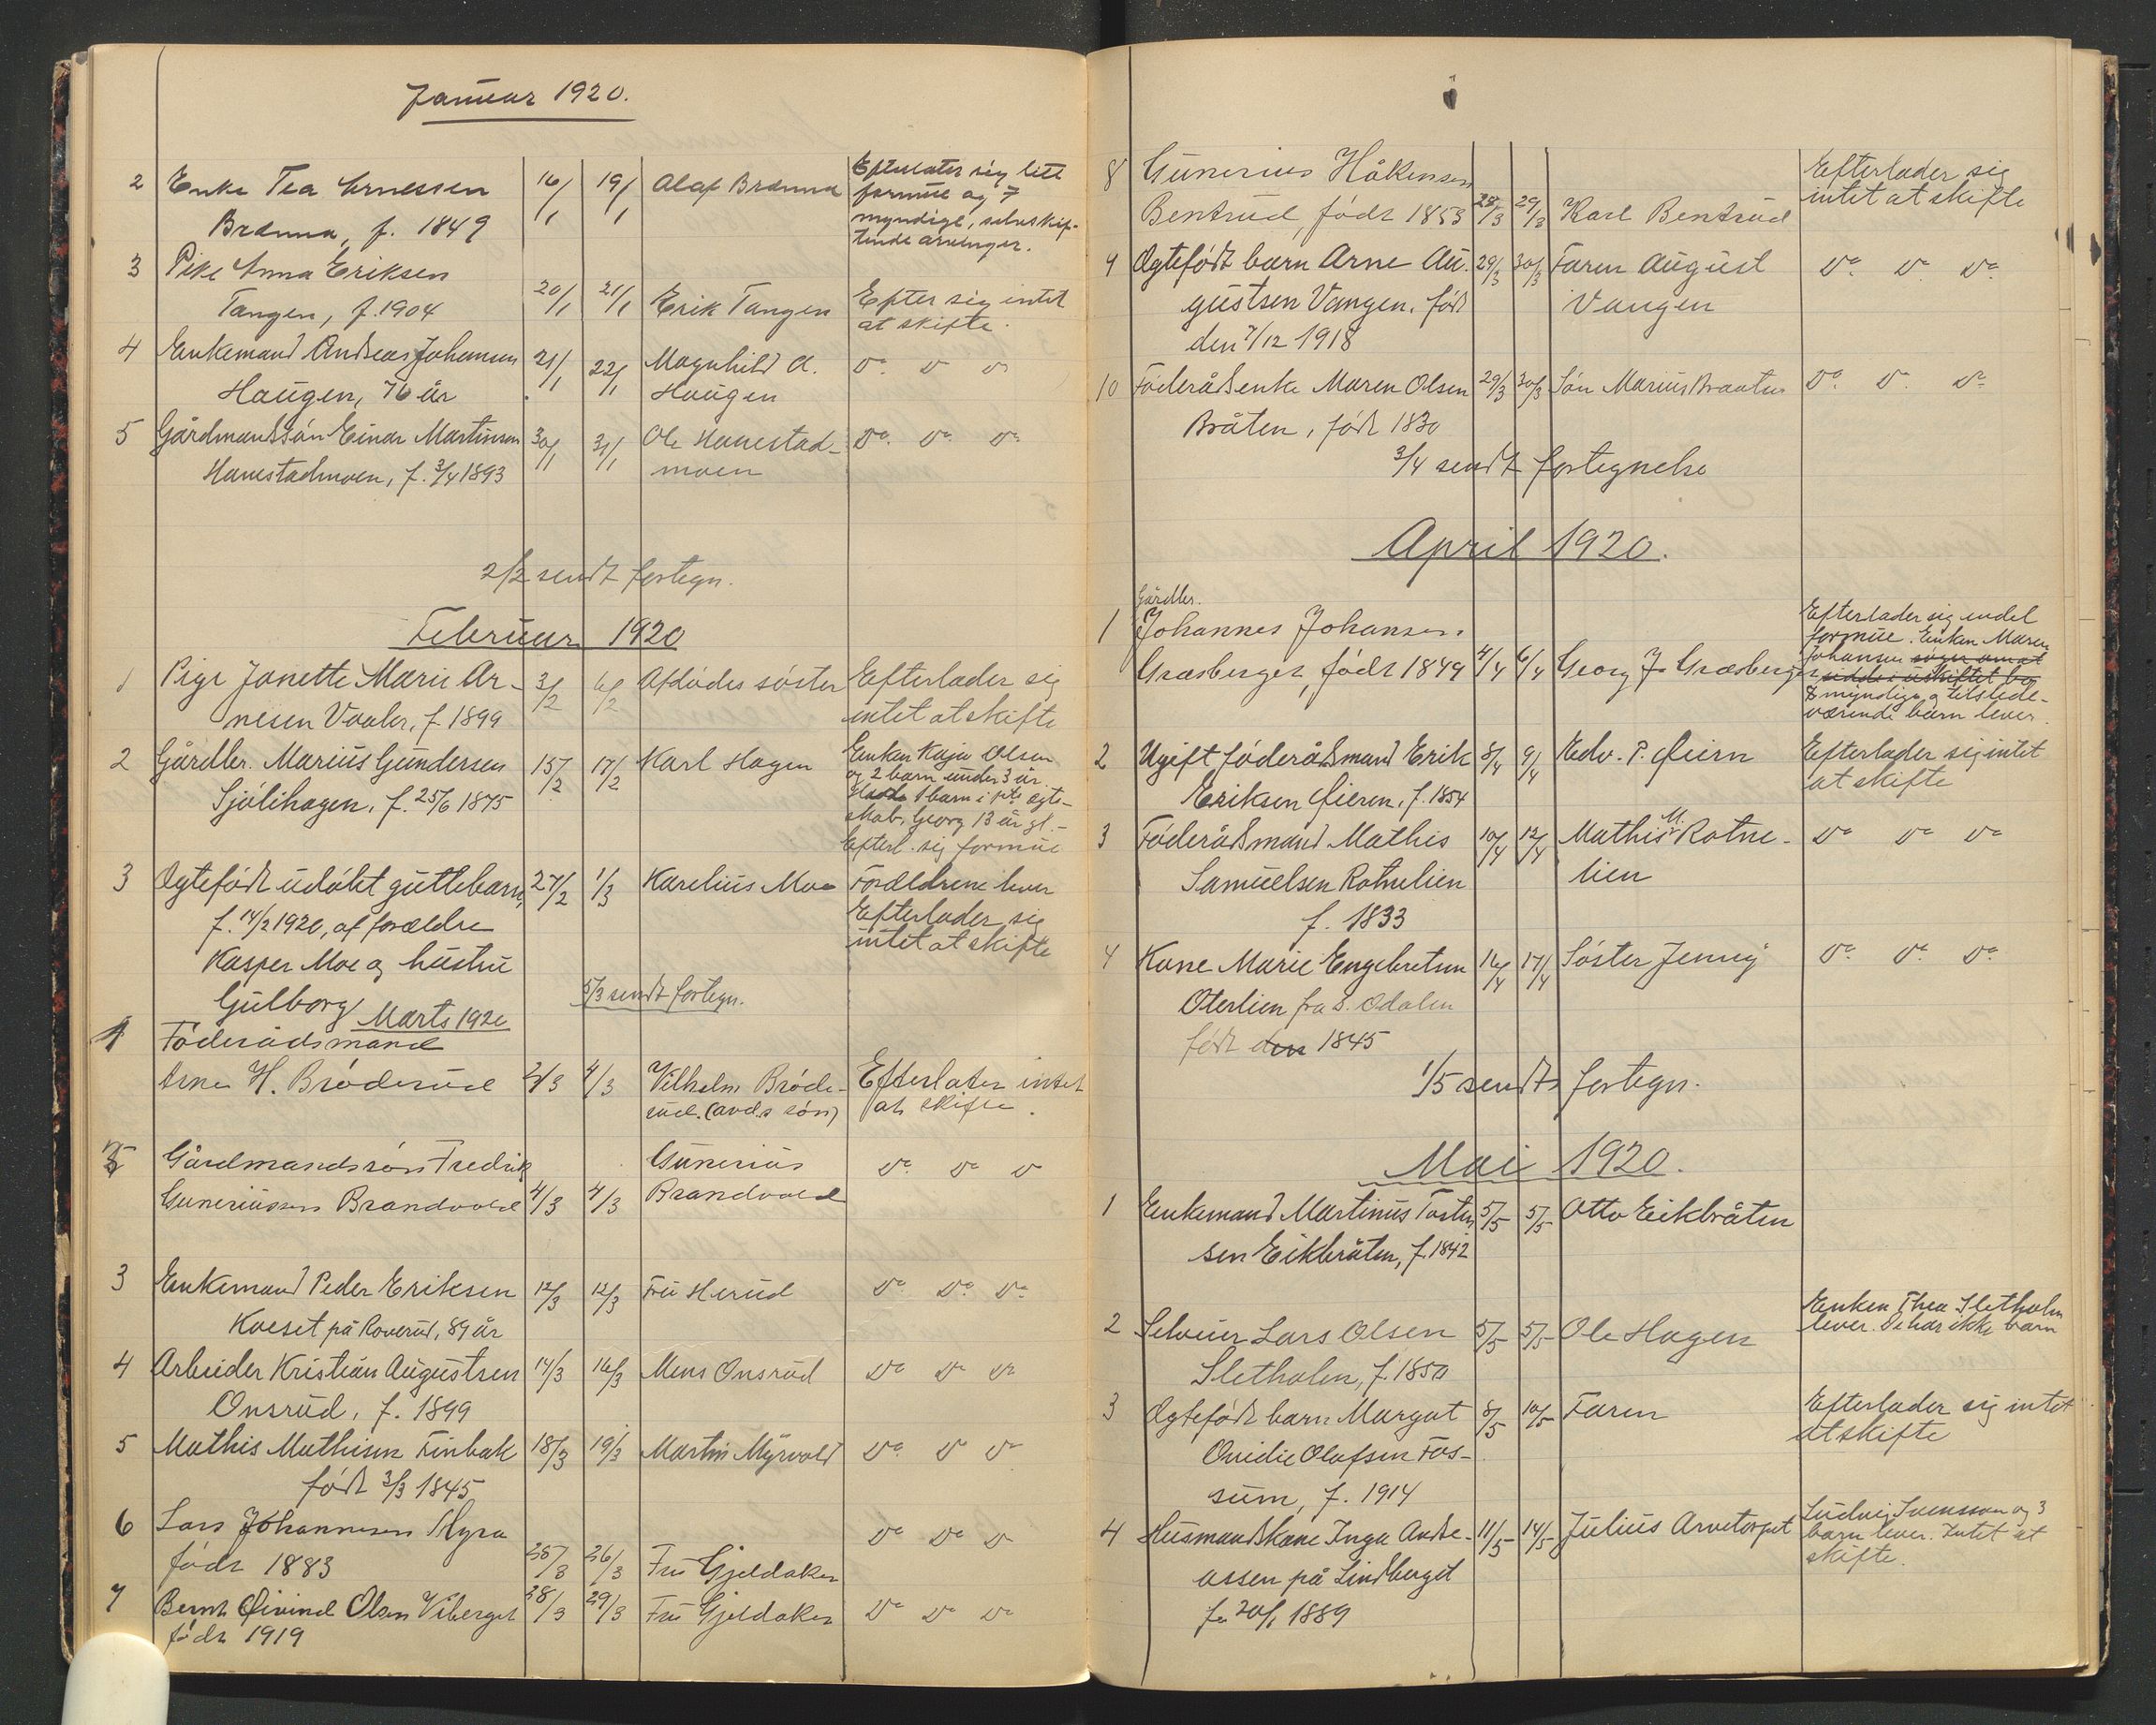 Januar 1920.
2 Enke Tea Arnessen 16/1 19/1 Olaf Brænna Efterlater sig litt
Brænna, f. 1849 formue og 7
myndige, selvskif-
tende arvinger.
3 Pike Anna Eriksen
Tangen, f. 1904 20/1 21/1 Erik Tangen Efter sig intet
at skifte.
4 Enkemand Andreas Johansen 21/1 22/1 Magnhild A. Do. Do Do
Haugen, 76 år Haugen
5 Gårdmandssøn Einar Martinsen 30/1 31/1 Ole Hanestad- Do. Do. Do
Hanestadmoen, f. 3/4 1893 moen
2/2 sendt fortegn.
Februar 1920
1 Pige Janette Marie Ar- 3/2 6/2 Afdødes søster Efterlader sig
nesen Vaaler, f. 1899 intet at skifte
2 Gårdbr. Marius Gundersen 15/2 17/2 Karl Hagen Enken Kaja Olsen
Sjølihagen, f. 25/6 1875 og 2 barn under 3 år
1 barn i 1ste egte-
skab, Georg 13 år gl.-
Efterl. sig formue
3 Egtefødt udøbt guttebarn, 27/2 1/3 Karelius Moe Forældrene lever
f. 14/2 1920, af forældre Efterlader sig
Kasper Moe og hustru intet at skifte
Gulborg 5/3 sendt fortegn.
Marts 1920
1 Føderådsmand
Arne H. Brøderud 2/3 4/3 Vilhelm Brøde- Efterlater intet
rud. (avd.s søn) at skifte.
2 Gårdmandssøn Fredrik Gunerius Do. Do Do
Guneriussen Brandvold 4/3 4/3 Brandvold
3 Enkemand Peder Eriksen 12/3 12/3 Fru Herud Do Do. Do
Kveset på Roverud, 89 år
4 Arbeider Kristian Augustsen 14/3 16/3 Mens Onsrud Do Do Do
Onsrud, f. 1899
5 Mathis Mathisen Finbak 18/3 19/3 Martin Myrvold Do. Do Do
født 3/3 1845
6 Lars Johannesen Myra Do Do Do
født 1883 25/3 26/3 Fru Gjeldaker
7 Bernt Øivind Olsen Viberget 28/3 29/3 Fru Gjeldaker Do Do Do
født 1919
8 Gunerius Håkensen Efterlader sig
Bentrud, født 1853 28/3 29/3 Karl Bentrud intet at skifte
9 Egtefødt barn Arne Au- 29/3 30/3 Faren August Do. Do Do
gustsen Vangen, født Vangen
den 7/12 1918
10 Føderådsenke Maren Olsen 29/3 30/3 Søn Marius Braaten Do. Do. Do
Bråten, født 1830
3/4 sendt fortegnelse
April 1920.
Gårdbr.
1 Johannes Johansen Efterlader sig endel
Græsberget, født 1849 4/4 6/4 Georg J. Græsberget formue. Enken Maren
Johansen søger om at
sidde i uskiftet bo
8 myndige og tilstede-
værende barn lever.
2 Ugift føderådsmand Erik 8/4 9/4 Edv. P. Øiern Efterlader sig intet
Eriksen Øieren, f. 1854 at skifte
3 Føderådsmand Mathis 10/4 12/4 Mathis M. Rotne- Do Do Do
Samuelsen Rotnelien lien
f. 1833
4 Kone Marie Engebretsen 16/4 17/4 Søster Jenny Do. Do. Do
Oterlien fra S. Odalen
født den 1845
1/5 sendt fortegn.
Mai 1920.
1 Enkemand Martinus Tosten 5/5 5/5 Otto Eikbråten
sen Eikbråten, f. 1842
2 Selveier Lars Olsen 5/5 5/5 Ole Hagen Enken Thea Sletholm
Sletholen, f. 1850 lever. De har ikke barn
3 Egtefødt barn Margot 8/5 10/5 Faren Efterlader sig intet
Ovidie Olafsen Fos- at skifte
sum, f. 1914
4 Husmandskone Inga Andre- 11/5 14/5 Julius Arnetorpet Ludvig Svensson og 3
assen på Lindberget barn lever. Intet at
f. 20/1 1889 skifte.